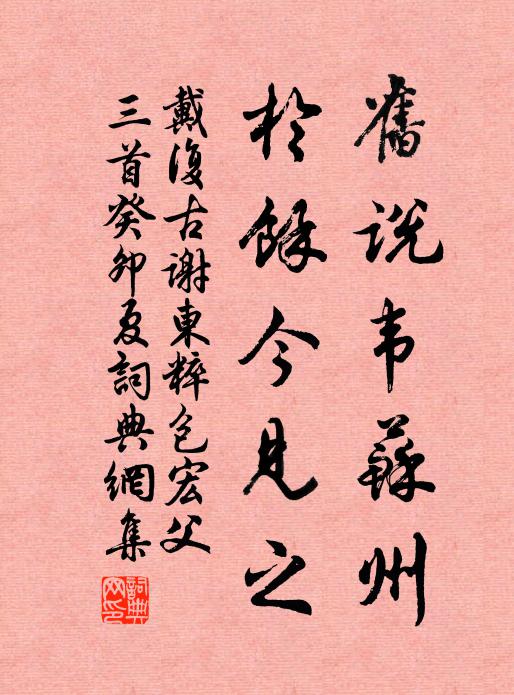 舊說韦蘇州
於餘今見之
戴復古謝東粹包宏父
三首癸卯夏詞典網集